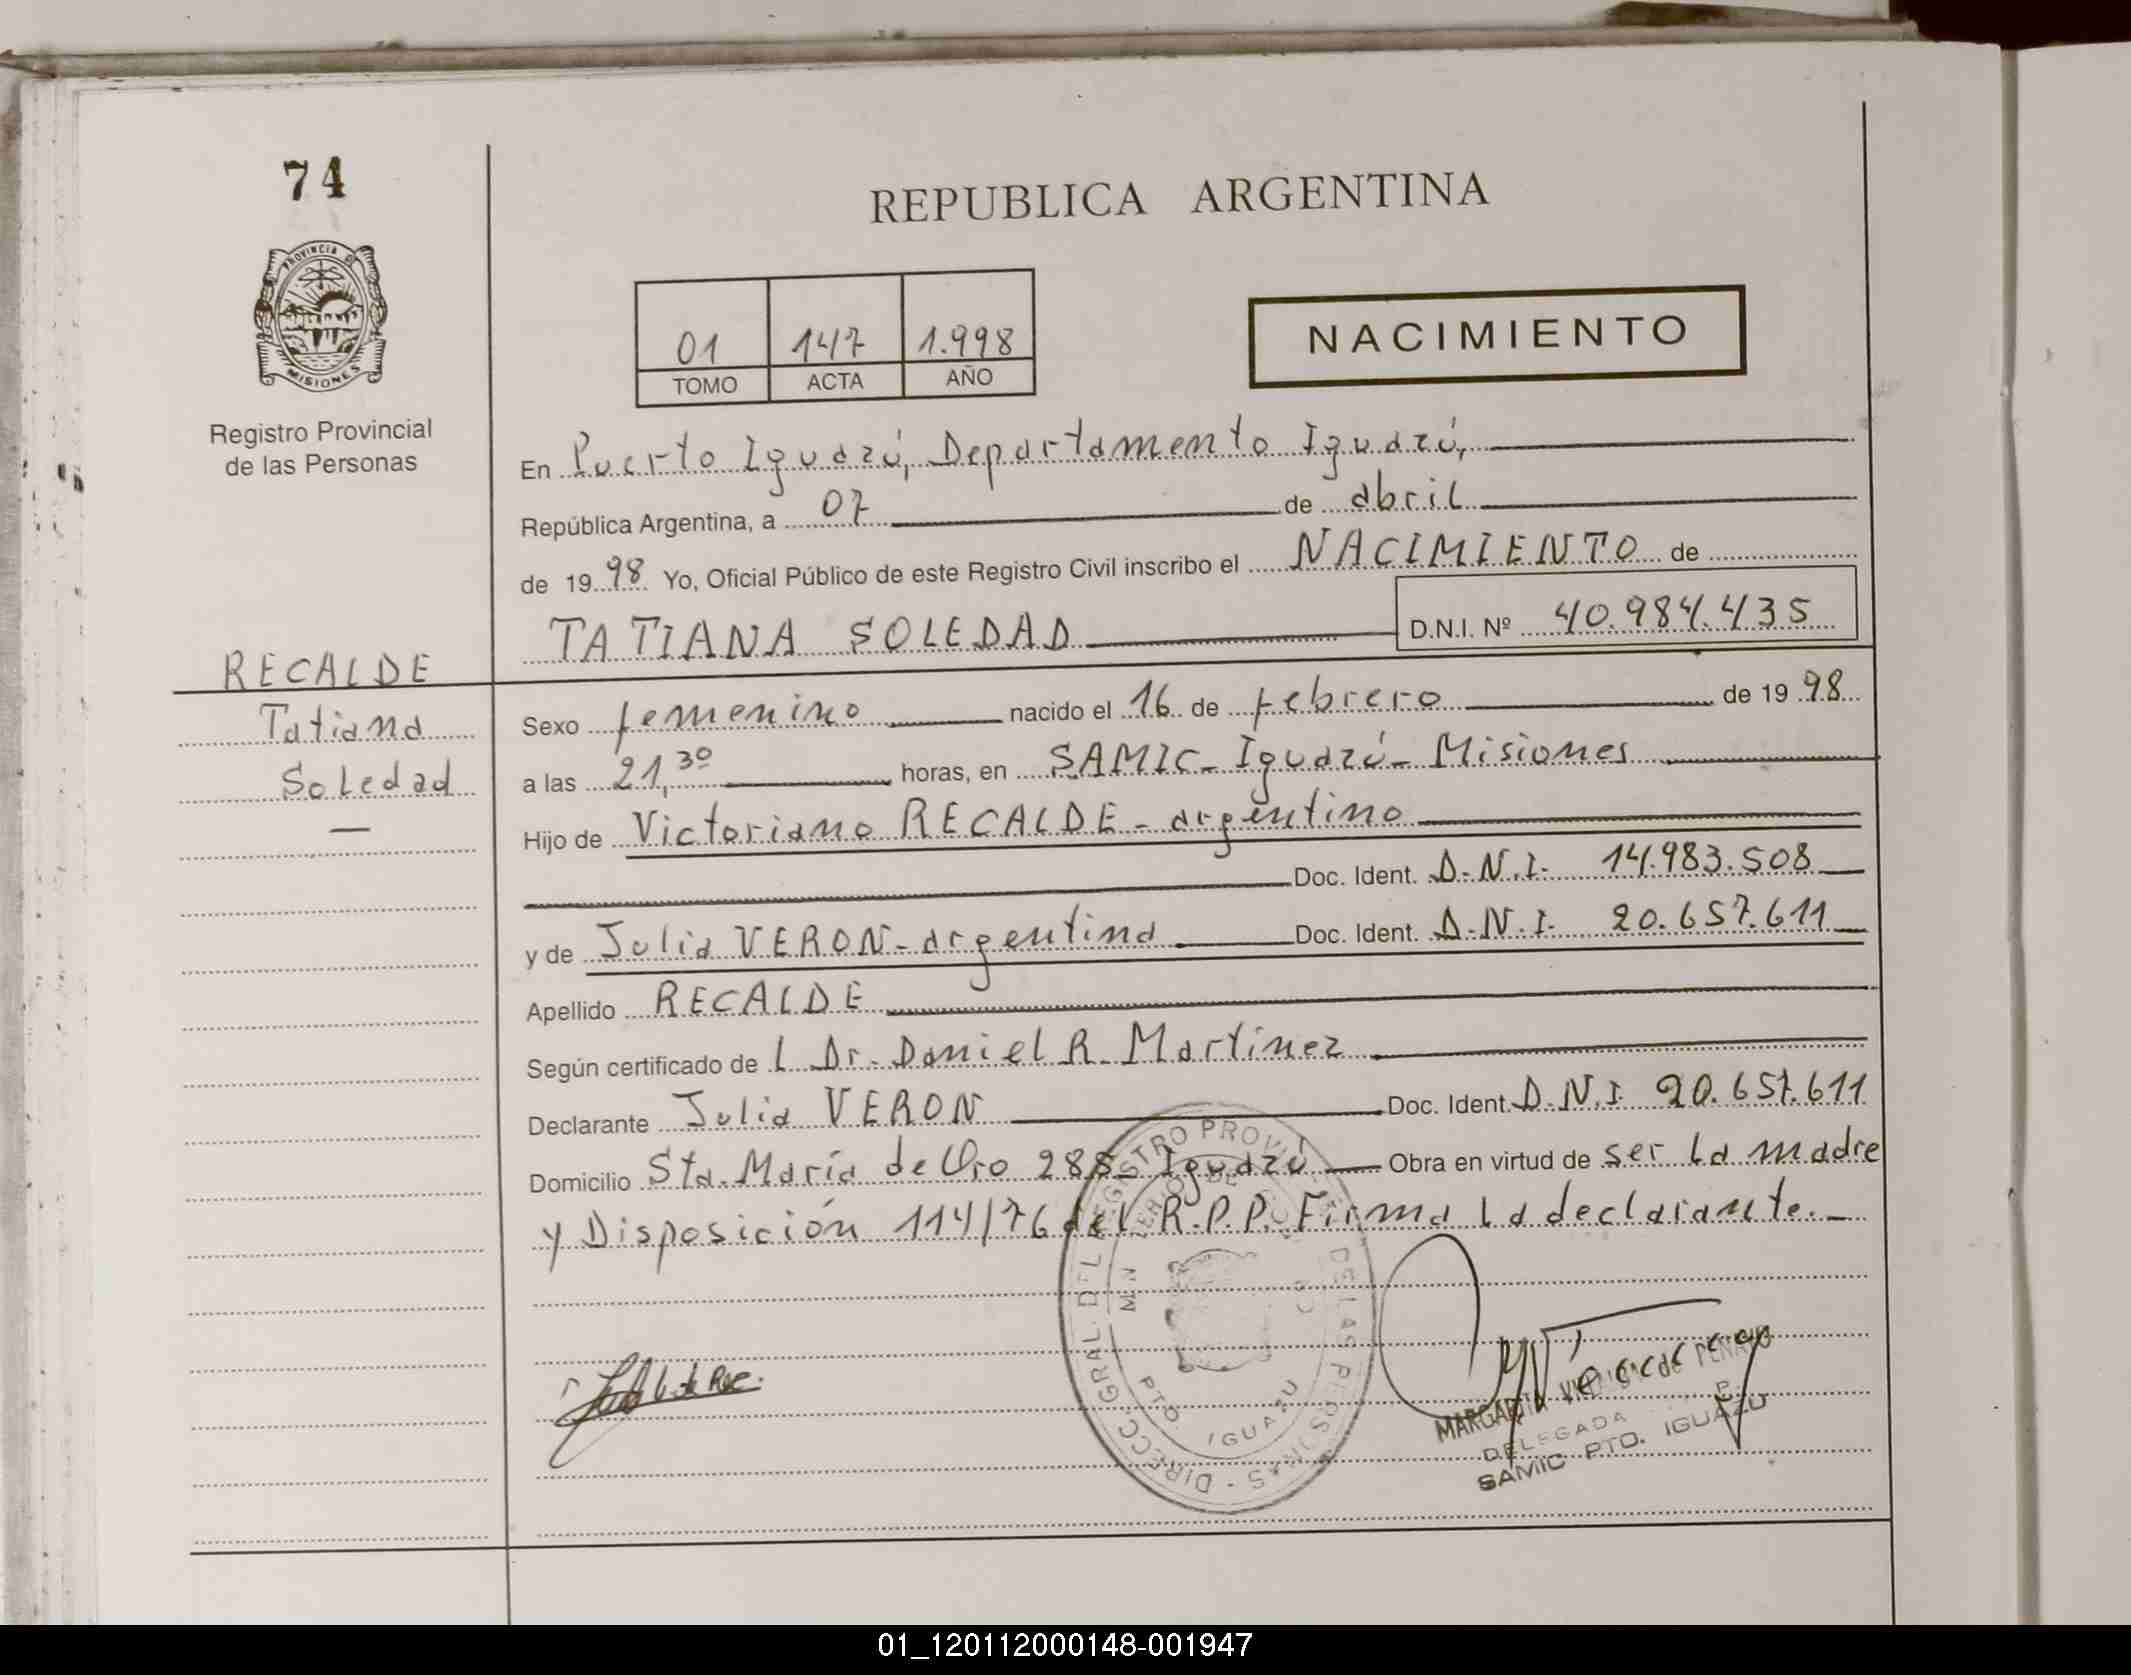 74
REPUBLICA ARGENTINA
PROVINCIA DE
MISIONES
Registro Provincial
de las Personas
01 147 1.998
TOMO ACTA AÑO
NACIMIENTO
En Puerto Iguazú, Departamento Iguazú,
República Argentina, a 07 de abril
de 19 98 Yo, Oficial Público de este Registro Civil inscribo el NACIMIENTO de
TATIANA SOLEDAD D.N.I. Nº 40.984.435
RECALDE
Tatiana
Soledad
—
Sexo femenino nacido el 16 de febrero de 19 98
a las 21,30 horas, en SAMIC - Iguazú - Misiones
Hijo de Victoriano RECALDE - argentino
Doc. Ident. D.N.I. 14.983.508
y de Julia VERON - argentina Doc. Ident. D.N.I. 20.657.611
Apellido RECALDE
Según certificado de l Dr. Daniel R. Martínez
Declarante Julia VERON Doc. Ident. D.N.I. 20.657.611
Domicilio Sta. María de Oro 288 Iguazú Obra en virtud de ser la madre
y Disposición 114/76 del R.P.P. Firma la declarante.
DIRECC. GRAL. DEL REGISTRO PROV. DE LAS PERSONAS
PTO. IGUAZU
MARGARITA
DELEGADA
SAMIC PTO. IGUAZU
01_120112000148-001947